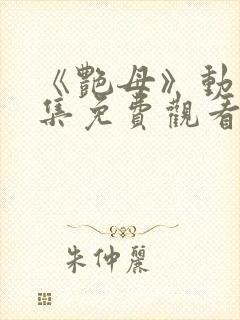 《艷母》動
集免費觀看
朱仲麗